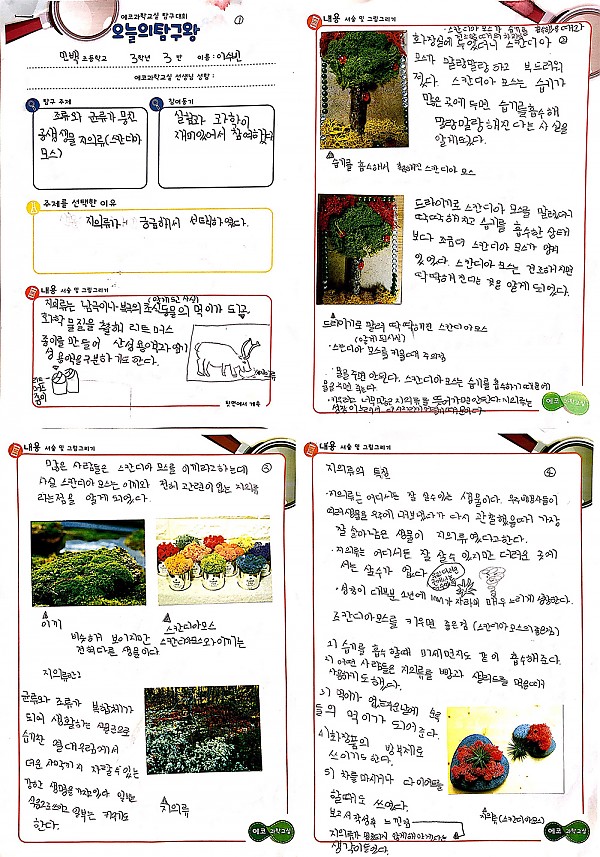 에코과학교실 탐구대회
오늘의탐구왕
①
민백 초등학교 3학년 3반 이름: 이수빈
에코과학교실 선생님 성함:
탐구 주제
조류와 균류가 뭉친
공생생물 지의류(스칸디아
모스)
참여동기
실험과 과학이
재미있어서 참여했다
주제를 선택한 이유
지의류가 궁금해서 선택하였다.
내용 서술 및 그림그리기
(알게 된 사실)
지의류는 남극이나 북극의 초식동물의 먹이가 되고,
화학 물질을 추출해 리트머스
종이를 만들어 산성 용액과 염기
성 용액을 구분하기도 한다.
리트
머스
종이
뒷면에서 계속
내용 서술 및 그림그리기
②
화장실에 두었더니 스칸디아
모스가 말랑말랑 하고 부드러워
졌다. 스칸디아 모스는 습기가
많은 곳에 두면 습기를 흡수해
말랑말랑 해진다는 사실을
알게되었다.
습기를 흡수해서 촉촉해진 스칸디아 모스
드라이기로 스칸디아 모스를 말렸더니
딱딱해지고 습기를
흡수한 상태
보다 조금더 스칸디아 모스가
있었다. 스칸디아 모스는 건조해지면
딱딱해진다는 것을 알게 되었다.
드라이기로 말려 딱딱해진 스칸디아모스
(알게 된 사실)
·스칸디아 모스를 키울때 주의점
·물을 주면 안된다. 스칸디아모스는 습기를 흡수하기 때문에
물을 주면 죽는다
에코 과학교실
내용 서술 및 그림그리기
③
많은 사람들은 스칸디아 모스를 이끼라고하는데
사실 스칸디아 모스는 이끼와 전혀 관련이 없는 지의류
라는점을 알게 되었다.
이끼
스칸디아모스
비슷하게 보이지만 스칸디아모스와 이끼는
전혀 다른 생물이다
지의류란?
균류와 조류가 복합체가
되어 생활하는 생물군으로
습기찬 열대우림에서
더운 사막까지 자랄수 있는
강한 생명을 가졌다. 일부는
식용으로쓰이고 일부는
한다.
지의류
에코 과학교실
내용 서술 및 그림그리기
④
지의류의 특징
·지의류는 어디서든 잘 살수있는 생물이다. 우주비행사들이
여러생물을 우주에 내보냈다가 다시 관찰했을때 가장
잘 살아남은 생물이 지의류였다고한다.
·지의류는 어디서든 잘 살수 있지만 더러운 곳에
서는 살수가 없다
·성장이 대부분 1년에 1mm가 자라며 매우 느리게 성장한다.
스칸디아모스를 키우면 좋은점 (스칸디아모스의좋은점)
1) 습기를 흡수할때 미세먼지도 같이 흡수해준다.
2) 어떤 사람들은 지의류를 빵과 샐러드를 먹을때
사용하기도 했다.
3) 먹이가 없는 추운날에 순록
들의 먹이가 되어준다.
4) 화장품의 방부제로
쓰이기도 한다.
5) 차를 마시거나 다이어트를
할때도 쓰인다.
보고서 작성후 느낀점
생각이들었다.
지의류(스칸디아모스)
에코 과학교실